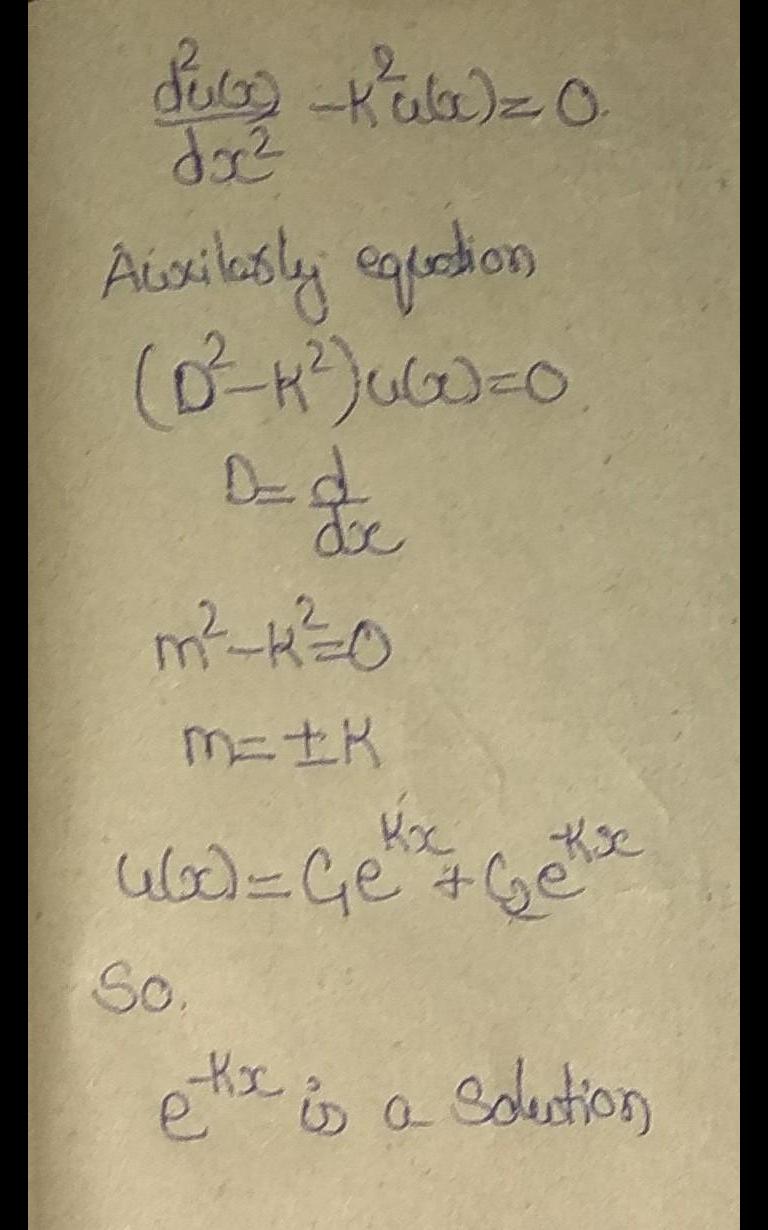 d²u(x)/dx² - K²u(x) = 0.
Auxilarly equation
(D² - K²)u(x) = 0
D = d/dx
m² - K² = 0
m = ± K
u(x) = C₁e^{Kx} + C₂e^{-Kx}
So,
e^{-Kx} is a Solution